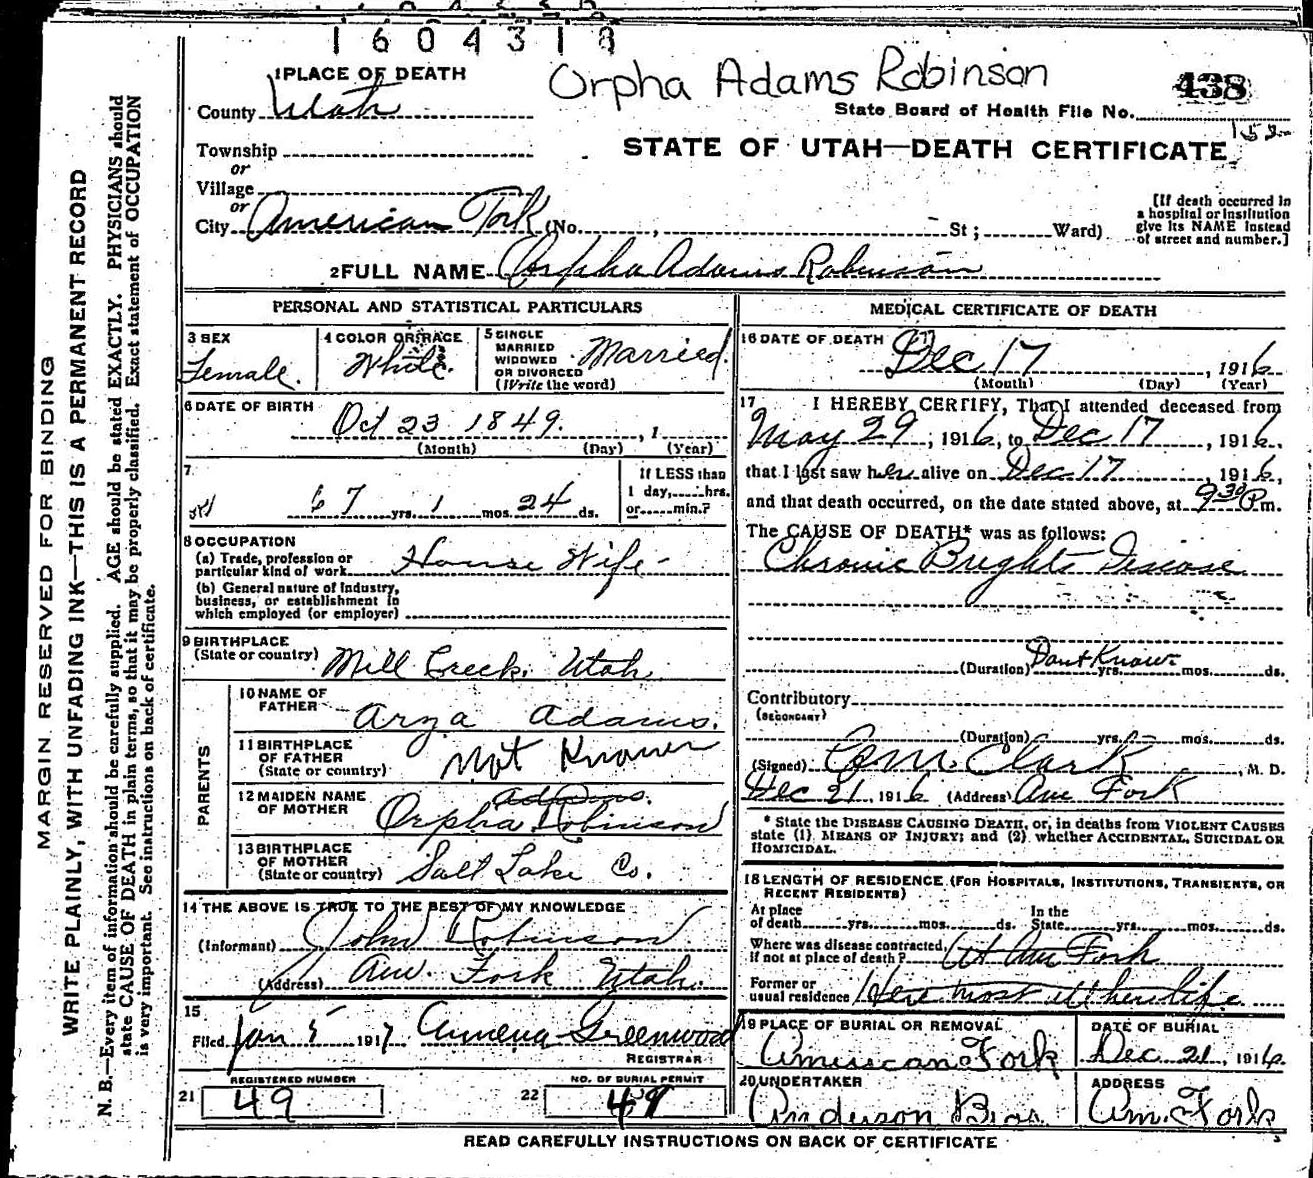 1604318
Orpha Adams Robinson
438
1 PLACE OF DEATH
County Utah
State Board of Health File No.
152
Township
or
Village
or
STATE OF UTAH—DEATH CERTIFICATE
City American Fork (No. , St ; Ward)
[If death occurred in
a hospital or institution
give its NAME instead
of street and number.]
2 FULL NAME Orpha Adams Robinson
PERSONAL AND STATISTICAL PARTICULARS
3 SEX
Female.
4 COLOR OR RACE
White.
5 SINGLE
MARRIED
WIDOWED
OR DIVORCED
(Write the word)
Married.
6 DATE OF BIRTH
Oct 23 1849. , 1
(Month) (Day) (Year)
7
67 yrs. 1 mos. 24 ds.
If LESS than
1 day, hrs.
or min.?
8 OCCUPATION
(a) Trade, profession or
particular kind of work House Wife
(b) General nature of industry,
business, or establishment in
which employed (or employer)
9 BIRTHPLACE
(State or country) Mill Creek. Utah
PARENTS
10 NAME OF
FATHER Arza Adams.
11 BIRTHPLACE
OF FATHER
(State or country) Not Known
12 MAIDEN NAME
OF MOTHER
Adams.
Orpha Robinson
13 BIRTHPLACE
OF MOTHER
(State or country) Salt Lake Co.
14 THE ABOVE IS TRUE TO THE BEST OF MY KNOWLEDGE
(Informant) John Robinson
(Address) Am. Fork Utah.
15
Filed Jan 5 1917 Amena Greenwood
REGISTRAR
REGISTERED NUMBER
21 49
NO. OF BURIAL PERMIT
22 49
MEDICAL CERTIFICATE OF DEATH
16 DATE OF DEATH
Dec 17 , 1916
(Month) (Day) (Year)
17 I HEREBY CERTIFY, That I attended deceased from
May 29 , 1916, to Dec 17 , 1916.
that I last saw her alive on Dec 17 , 1916,
and that death occurred, on the date stated above, at 9 30 P m.
The CAUSE OF DEATH* was as follows:
Chronic Brights Disease
(Duration) Dont Know yrs. mos. ds.
Contributory
(SECONDARY)
(Duration) yrs. mos. ds.
(Signed) Clark , M. D.
Dec 21, 1916 (Address) Am Fork
* State the DISEASE CAUSING DEATH, or, in deaths from VIOLENT CAUSES
state (1) MEANS OF INJURY; and (2) whether ACCIDENTAL, SUICIDAL OR
HOMICIDAL.
18 LENGTH OF RESIDENCE (FOR HOSPITALS, INSTITUTIONS, TRANSIENTS, OR
RECENT RESIDENTS)
At place
of death yrs. mos. ds.
In the
State yrs. mos. ds.
Where was disease contracted,
if not at place of death? At Am Fork
Former or
usual residence Here most of her life
19 PLACE OF BURIAL OR REMOVAL
American Fork
DATE OF BURIAL
Dec 21, 1916.
20 UNDERTAKER
Anderson Bros.
ADDRESS
Am. Fork
READ CAREFULLY INSTRUCTIONS ON BACK OF CERTIFICATE
MARGIN RESERVED FOR BINDING
WRITE PLAINLY, WITH UNFADING INK—THIS IS A PERMANENT RECORD
N. B.—Every item of information should be carefully supplied. AGE should be stated EXACTLY. PHYSICIANS should
state CAUSE OF DEATH in plain terms, so that it may be properly classified. Exact statement of OCCUPATION
is very important. See instructions on back of certificate.